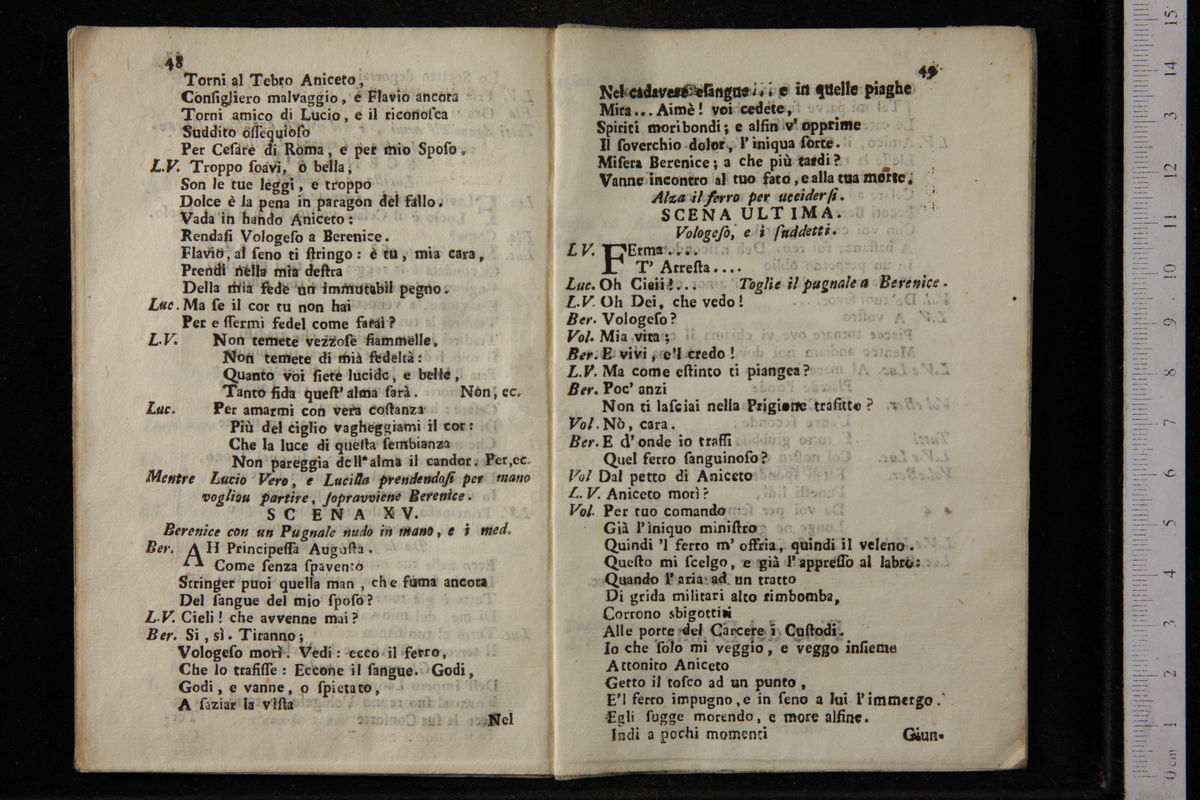 48
Torni al Tebro Aniceto,
Conſigliero malvaggio, e Flavio ancora
Torni amico di Lucio, e il riconoſca
Suddito oſſequioſo
Per Ceſare di Roma, e per mio Spoſo.
L.V. Troppo ſoavi, o bella,
Son le tue leggi, e troppo
Dolce è la pena in paragon del fallo.
Vada in bando Aniceto:
Rendaſi Vologeſo a Berenice.
Flavio, al ſeno ti ſtringo: e tu, mia cara,
Prendi nella mia deſtra
Della mia fede un immutabil pegno.
Luc. Ma ſe il cor tu non hai
Per eſſermi fedel come farai?
L.V. Non temete vezzoſe fiammelle,
Non temete di mia fedeltà:
Quanto voi ſiete lucide, e belle,
Tanto fida queſt' alma ſarà. Non, ec.
Luc. Per amarmi con vera coſtanza
Più del ciglio vagheggiami il cor:
Che la luce di queſta ſembianza
Non pareggia dell' alma il candor. Per, ec.
Mentre Lucio Vero, e Lucilla prendendoſi per mano
vogliou partire, ſopravviene Berenice.
SCENA XV.
Berenice con un Pugnale nudo in mano, e i med.
Ber. AH Principeſſa Auguſta.
Come ſenza ſpavento
Stringer puoi quella man, che fuma ancora
Del ſangue del mio ſpoſo?
L.V. Cieli! che avvenne mai?
Ber. Si, sì. Tiranno;
Vologeſo morì. Vedi: ecco il ferro,
Che lo trafiſſe: Eccone il ſangue. Godi,
Godi, e vanne, o ſpietato,
A ſaziar la viſta
Nel
49
Nel cadavere eſangue... e in quelle piaghe
Mira... Aimè! voi cedete,
Spiriti moribondi; e alfin v' opprime
Il ſoverchio dolor, l' iniqua ſorte.
Miſera Berenice; a che più tardi?
Vanne incontro al tuo fato, e alla tua morte.
Alza il ferro per ucciderſi.
SCENA ULTIMA.
Vologeſo, e i ſuddetti.
L V. FErma....
T' Arreſta....
Luc. Oh Cieii!... Toglie il pugnale a Berenice.
L.V. Oh Dei, che vedo!
Ber. Vologeſo?
Vol. Mia vita;
Ber. E vivi, e'l credo!
L.V. Ma come eſtinto ti piangea?
Ber. Poc' anzi
Non ti laſciai nella Prigione trafitto?
Vol. Nò, cara.
Ber. E d' onde io traſſi
Quel ferro ſanguinoſo?
Vol Dal petto di Aniceto
L. V. Aniceto morì?
Vol. Per tuo comando
Già l' iniquo miniſtro
Quindi 'l ferro m' offria, quindi il veleno.
Queſto mi ſcelgo, e già l' appreſſo al labro:
Quando l' aria ad un tratto
Di grida militari alto rimbomba,
Corrono sbigottiti
Alle porte del Carcere i Cuſtodi.
Io che ſolo mi veggio, e veggo inſieme
Attonito Aniceto
Getto il toſco ad un punto,
E'l ferro impugno, e in ſeno a lui l' immergo.
Egli fugge morendo, e more alfine.
Indi a pochi momenti
Giun-